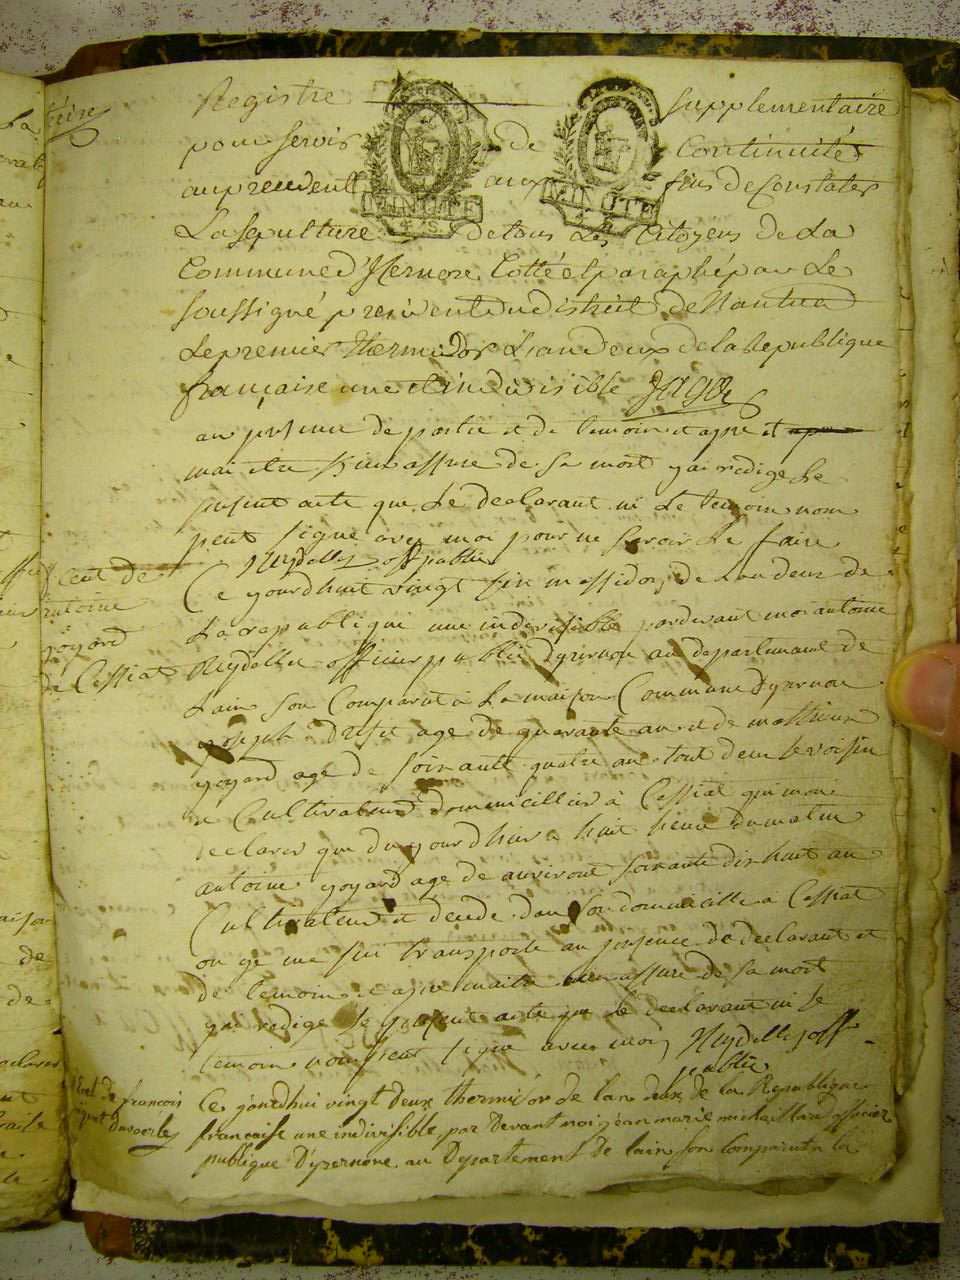 Registre supplementaire
pour servir de Continuité
au precedent aux fins de Constater
MINUTE MINUTE
La Sepulture de tous Les Citoyens de La
Commune d'Izernore Cotté et paraphé par Le
Soussigné president du district de Nantua
Le premier thermidor L'an deux de la Republique
française une et indivisible Jagot
au presence de partie et de temoin et apre et
mai etre bien assure de Sa mort jai redige Le
present acte que Le declarant ni Le temoin nom
peut Signe avec moi pour ne Savoir Le faire
Reydellet off public
Ce jourdhuit vingt six messidor de Lan deux de
La republique une indivisible pardevant moi antoine
Reydellet officier public dyzernore au departement de
Lain Son Comparut a La maison Commune dyzernore
joseph age de quarante an et de mathieu
goyard age de Soixante quatre an tout deux Le voisin
et Cultivateur domicillier à Cessiat qui mon
declarer que du jourdhuis a huit heure du matin
antoine goyard age de anviront Soixante dix huit an
Cultivateur et decede dans Son domicille a Cessiat
ou je me Sui transporte au presence de declarant et
de temoin et apre maitre bien assure de Sa mort
jai redige Le present acte que Le declarant ni Le
temoin nom peut Signe avec moi Reydellet off
public
Ce jourdhui vingt deux thermidor de lan deux de la Republique
française une indivisible par devant moi jean marie officier
publique D'yzernore au Departement De lain son Comparut a la
decet de
antoine
goyard
de Cessiat
Decet de françois